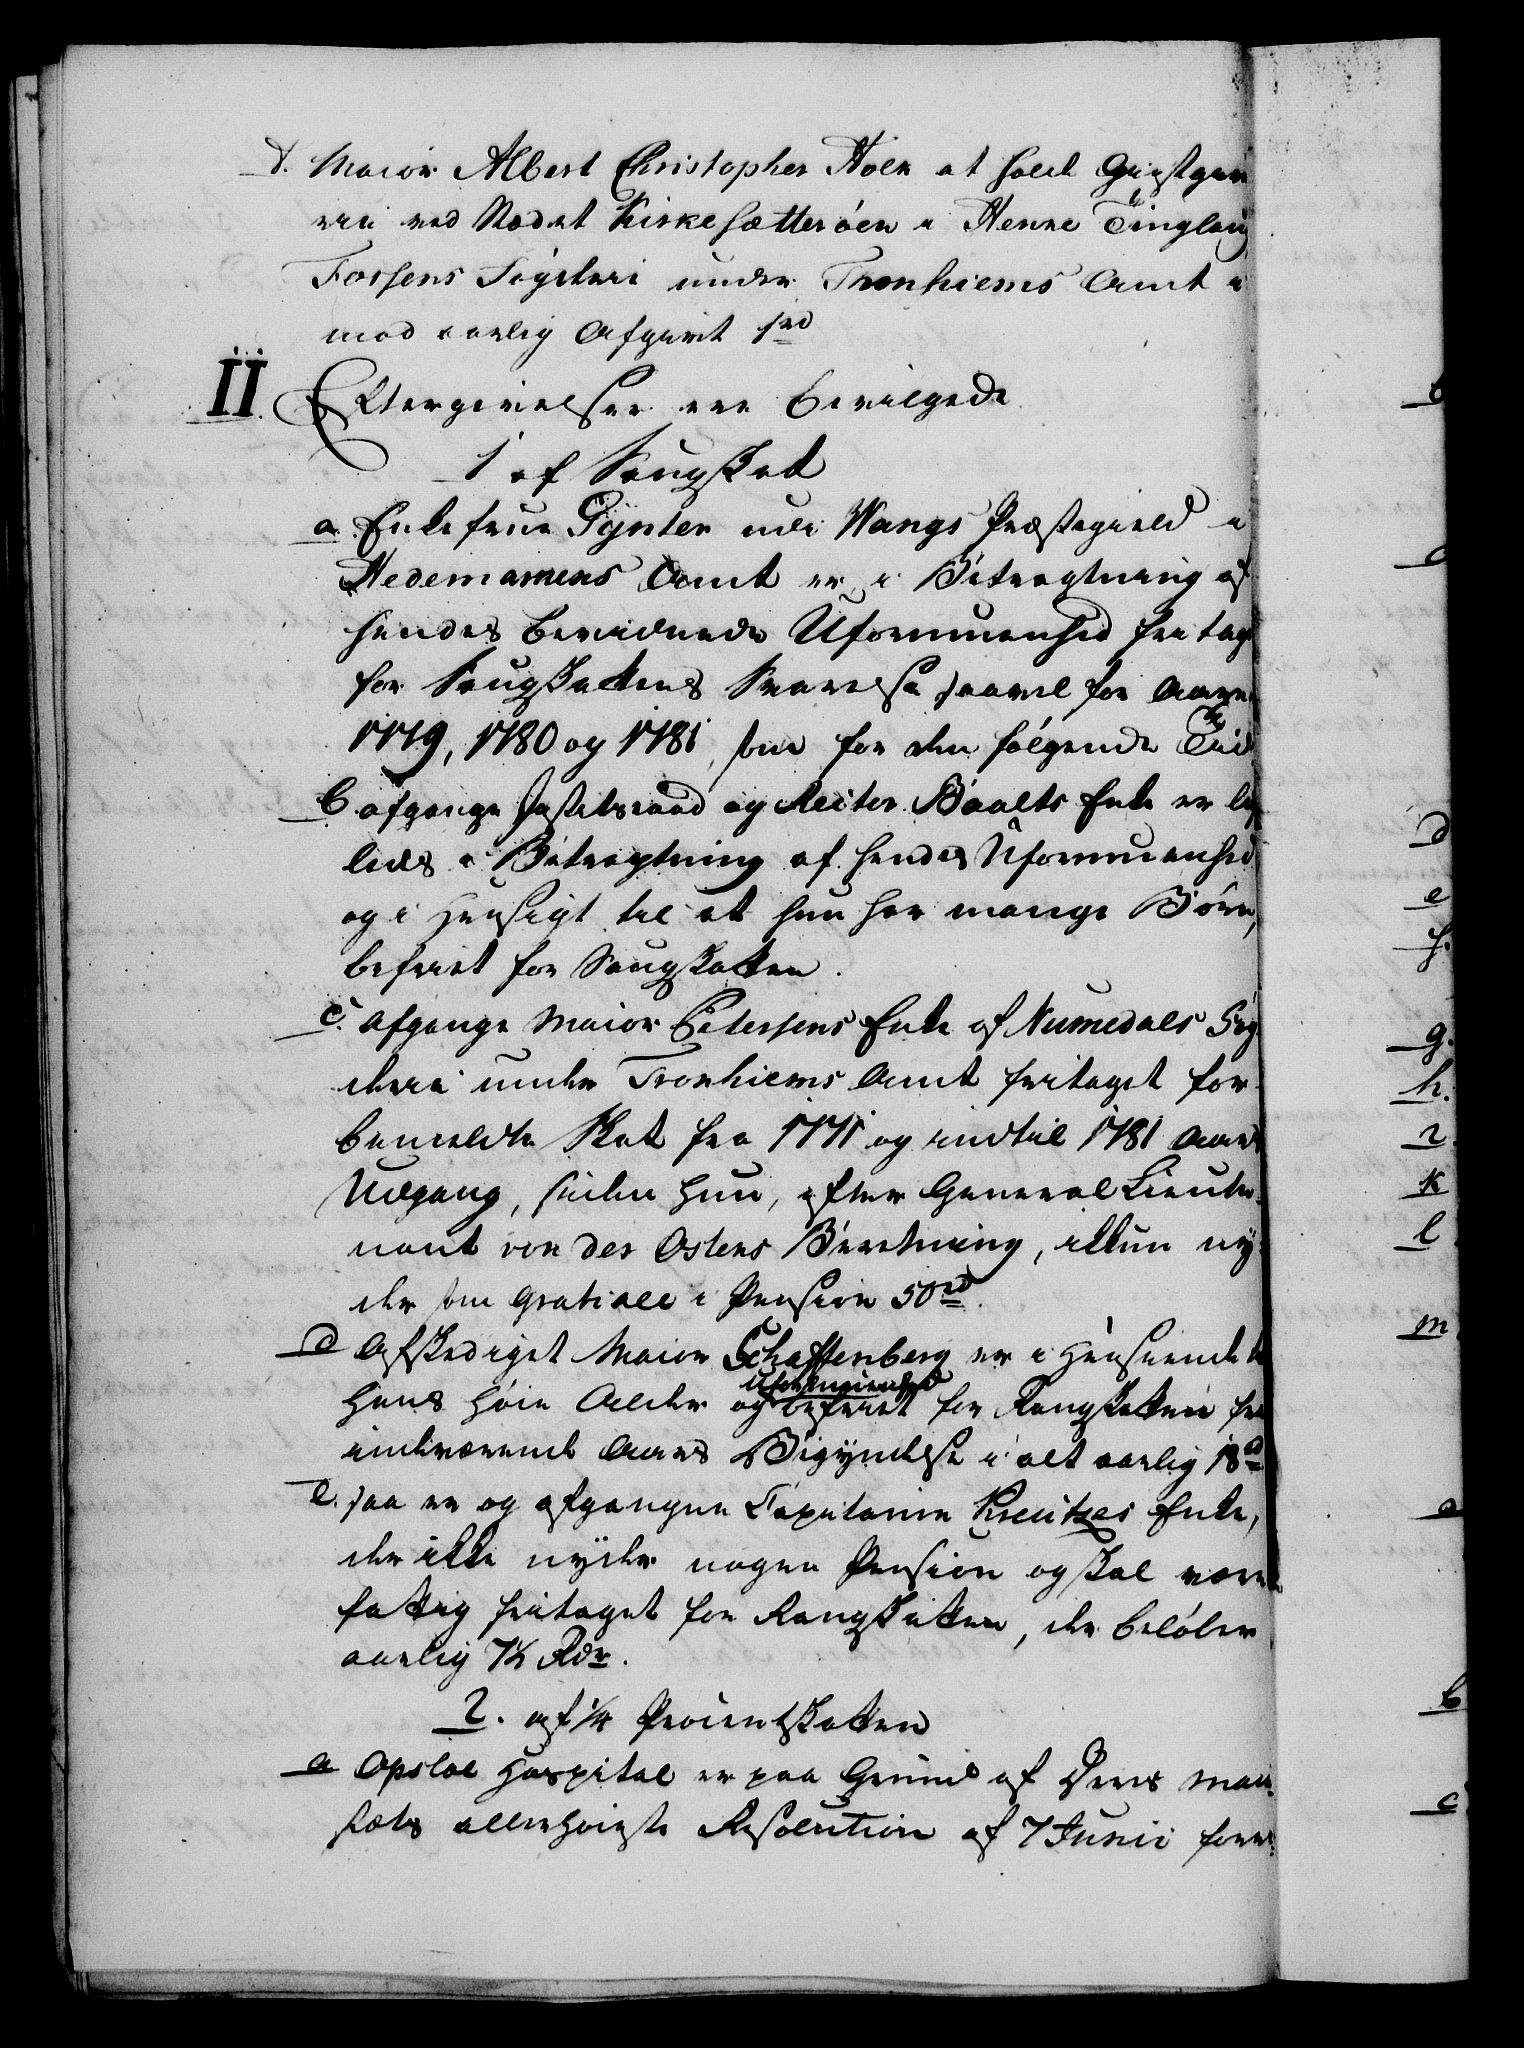 d. Maior Albert Christopher Holk at hold Giæstgive
rie ved Stædet Kirkesætterøen i Henne Tinglaug
Fossens Fogderi under Tronhiems Amt i
mod aarlig Afgivt 1rd
II. Eftergivelser ere bevilgede
1 af Rangskat
a. Enkefrue Gynter udi Wangs Præstegield i
Hedemarkens Amt er i Betragtning af
hendes beviidnede Uformuenhed fritag
for Rangskattens Svarelse saavel for Aarene
1779, 1780 og 1781, som for den følgende Tiid
b afgangne Justitsraad og Recter Baalts Enke er lige
ledes i Betragtning af hendes Uformuenhed
og i Hensigt til at hun har mange Børn,
befriet for Rangskatten.
c. Afgangne Maior Petersens Enke af Numedals Fog
derie under Tronhiems Amt fritaget for
bemeldte Skat fra 1771 og indtil 1781 Aars
Udgang, siden hun, efter General Lieute
nant von der Ostens Beretning, ikkun ny
der som Gratiale i Pension 50rd.
d Afskediget Maior Schaftenberg er i Henseende til
Uformuenhed
hans høie Alder og befriet for Rangskatten fra
indeværende Aars Begyndelse i alt aarlig 18rd
e. saa er og afgangne Capitaine Kreutzes Enke,
der ikke nyder nogen Pension og skal være
fattig fritaget for Rangskatten, der beløber
aarlig 7½ Rdr.
2. af ¼ Procentskatten
a Opsloe Hospital er paa Grund af Deres Maie
stæts allerhøieste Resolution af 7 Junii forr